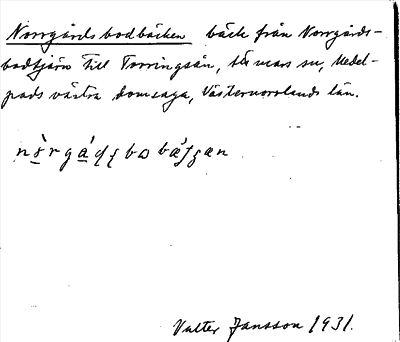 Norrgårdsbodbäcken bäck från Norrgårds-
bodtjärn till Torringsån, Haverö sn, Medel-
pads västra domsaga, Västernorrlands län.
Valter Jansson 1931.